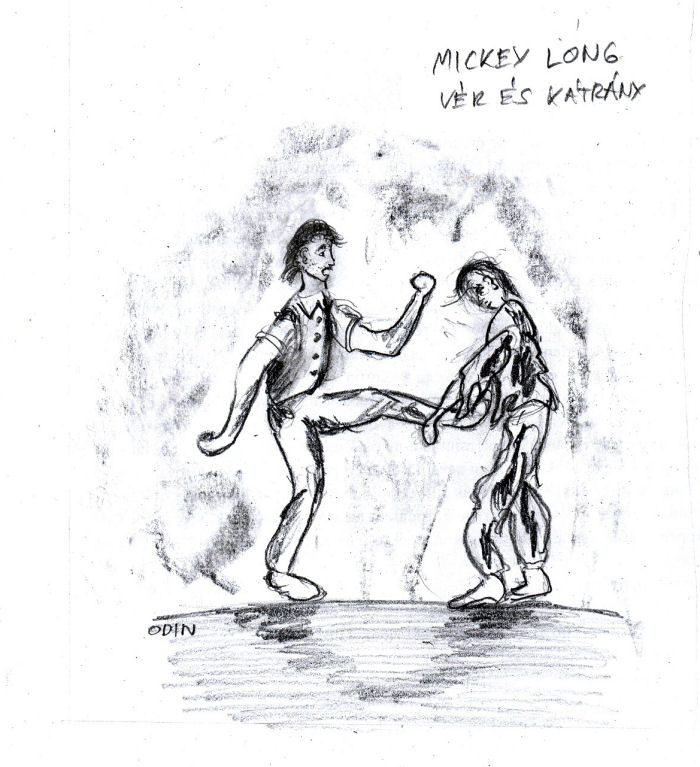 MICKEY LONG
VÉR ÉS KÁTRÁNY
ODIN